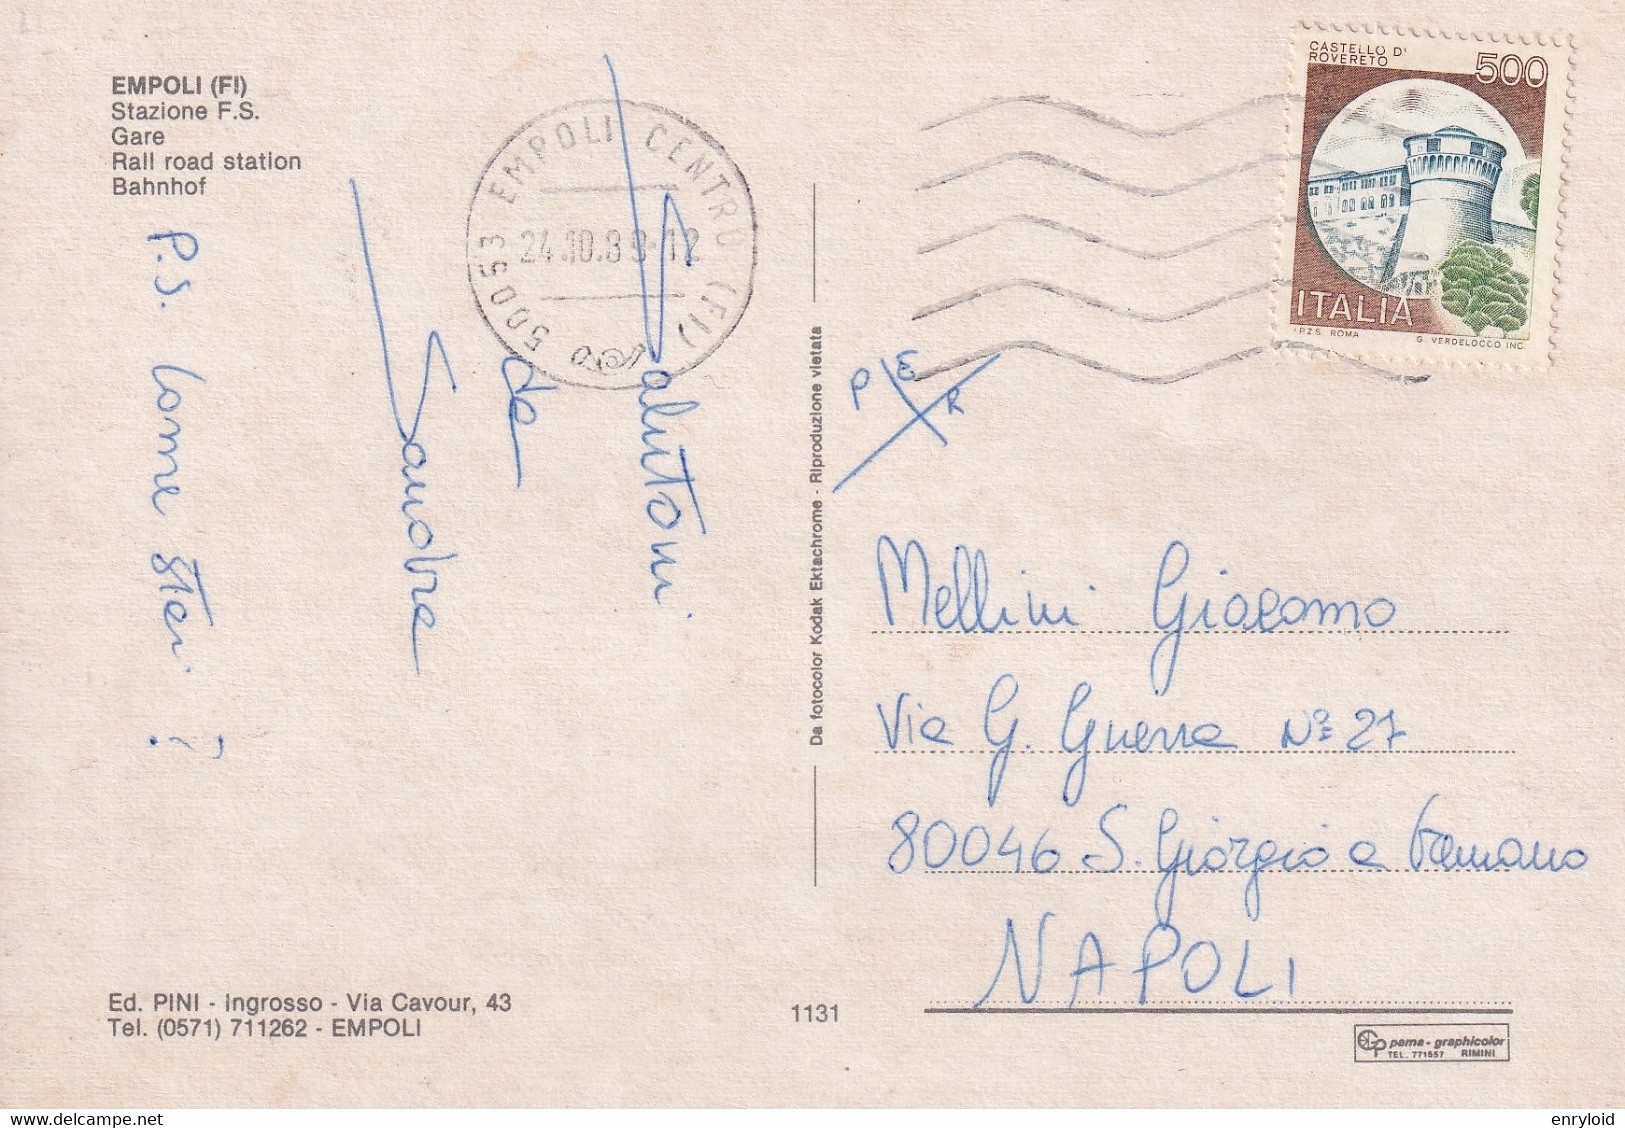 EMPOLI (FI)
Stazione F.S.
Gare
Rail road station
Bahnhof
50053 EMPOLI CENTRO (FI)
24.10.89-12
CASTELLO D'
ROVERETO
500
ITALIA
I.P.Z.S. ROMA
G. VERDELOCCO INC.
Salutoni
da
Sandra
P.S. Come stai?
Da fotocolor Kodak Ektachrome - Riproduzione vietata
PER
Mellini Giacomo
Via G. Guerra N° 27
80046 S. Giorgio a Cremano
NAPOLI
Ed. PINI - Ingrosso - Via Cavour, 43
Tel. (0571) 711262 - EMPOLI
1131
GP pama - graphicolor
TEL. 771557 RIMINI
enryloid